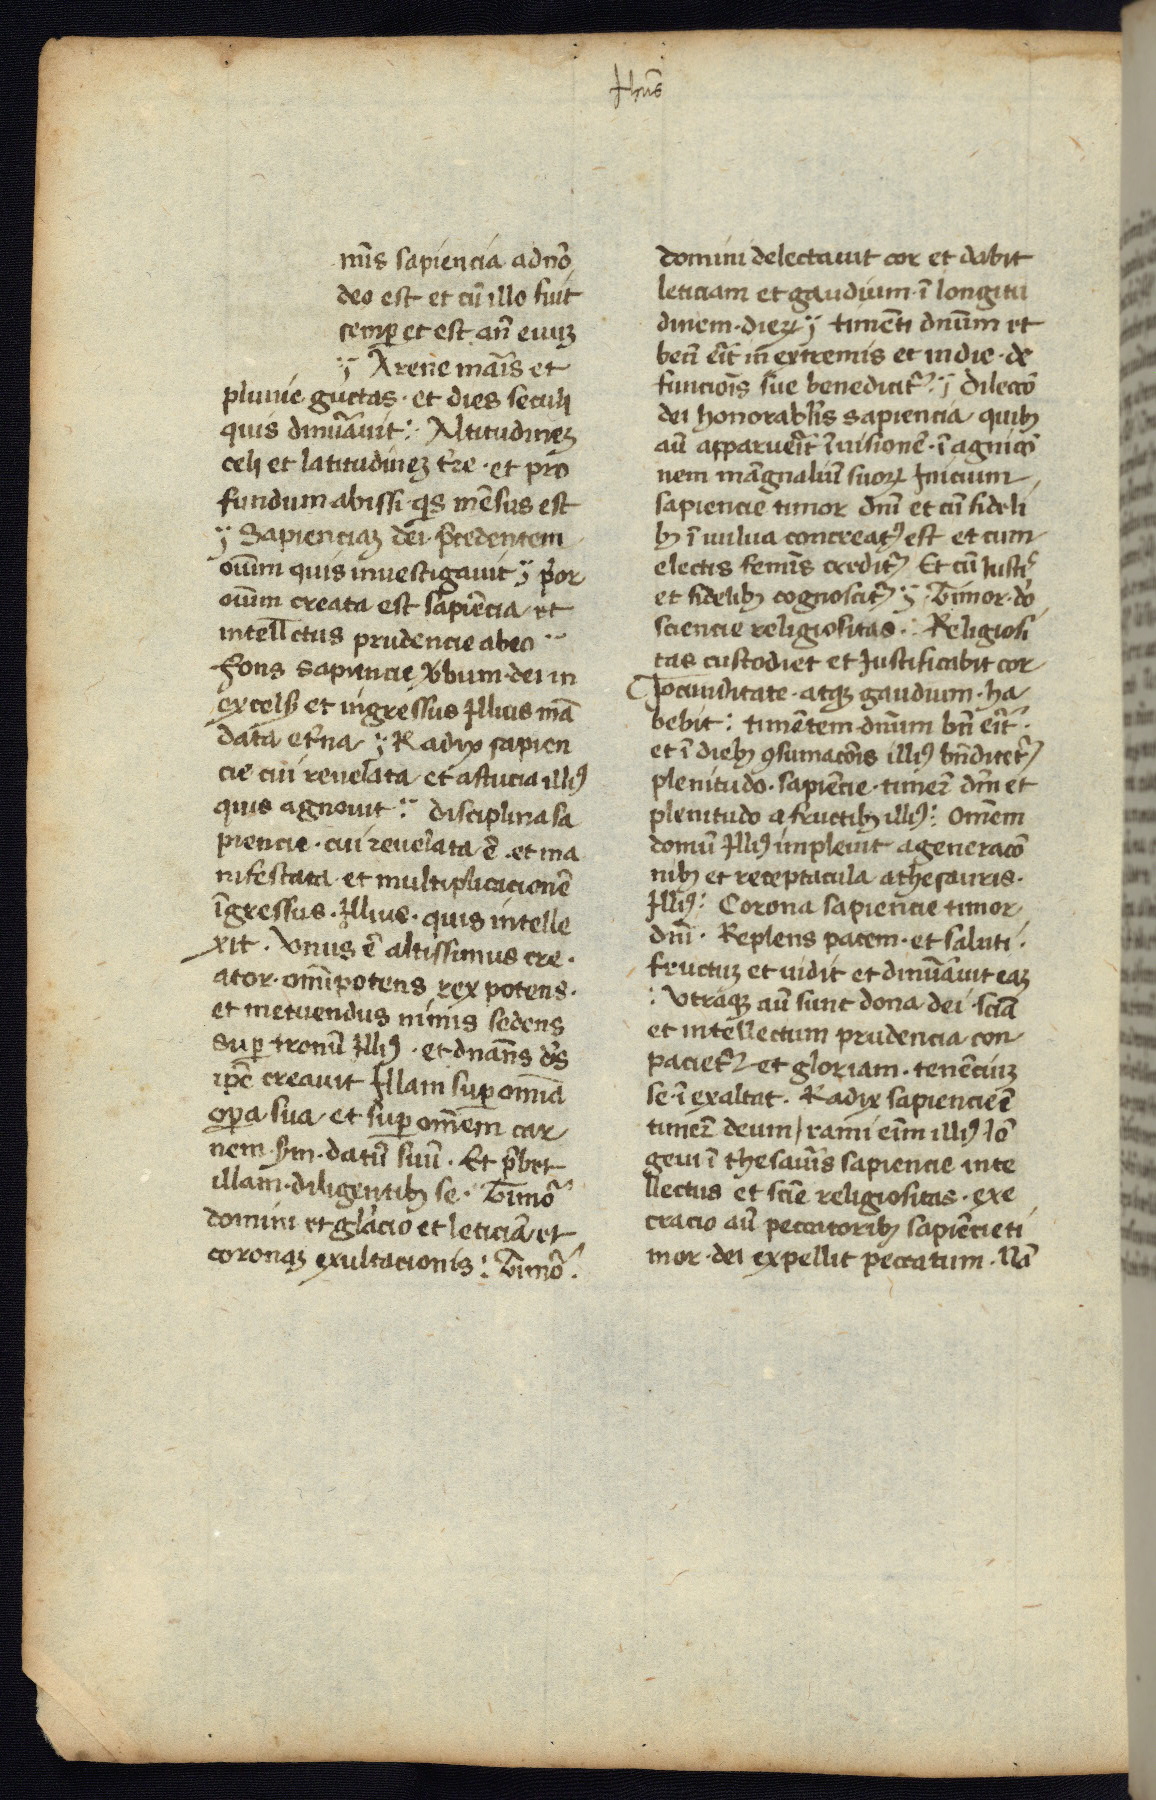 Jhūs
mīs sapiencia adnō
deo est et cū illo fuit
semp et est an̄ euuꝫ
ÿ Arene mar̄is et
pluuie guttas · et dies seculi
quis dinūauit : Altitudineꝫ
celi et latitudineꝫ tr̄e · et pro
fundum abissi · qis mēsus est
ÿ Sapienciaꝫ dei · p̄cedentem
oīum quis inuestigauit ÿ p̄or
oīum creata est sapiēcia · et
intellctus prudencie abeo ··
fons sapiencie v̄bum · dei in
excels̄ et ingressus Jllius mā
data et̄na ÿ Radyx sapien
cie cui reuelata et astucia illiꝰ
quis agnouit : disciplina sa
piencie · cui reuelata ē · et ma
nifestata et multiplicacionē
īgressus · Jllius · quis intelle
xit · Vnus ē altissimus cre ·
ator · omīpotens rex potens ·
et metuendus nimis sedens
sup tronū Jlliꝰ · et dnāns d̄s
ip̄e creauit Jllam sup om̄ia
opa sua et sup om̄em car
nem · s̄m · datū suū · Et p̄bet
illam · diligentibꝫ se · Timōr
domini et glācio et leticiā et
coronaꝫ exultacionis : Timōr ·
domini delectauit cor et dabit
leticiam et gaudium · ī longitu
dinem · dieꝝ ÿ timēti dnūm et
ben̄ eit̄ in extremis et in die · de
funcioīs sue benedicit᷑ ÿ dilecco
dei honorabl̄is sapiencia quibꝫ
aū apparueīt ī uisionē · ī agnicō
nem māgnaliū suoꝝ Jnicium
sapiencie timor dnī et cū fideli
bꝫ ī uulua concreatꝰ est et cum
electis femīs credit᷑ Et cū Iusti᷑
et fidelibꝫ cognoscit᷑ ÿ Timor · do᷑
sciencie religiositas : Religiosi
tas custodiet et Justificabit cor
Jocunditate · atqꝫ gaudium · ha
bebit : timētem · dnūm bn̄ eit̄ ·
et ī diebꝫ ꝯsumacōis illiꝰ bn̄dicet᷑
plenitudo · sapiēcie · timer̄ dm̄ et
plenitudo a fructibꝫ illiꝰ : Om̄em
domū Jlliꝰ impleuit a generacō
nibꝫ et receptacula athesauris ·
Jlliꝰ : Corona sapiencie timor
dnī · Replens pacem · et saluti ·
fructuꝫ et uidit et dinūauit eaꝫ
: Vtraqꝫ aū sunt dona dei · sciā
et intellectum prudencia con
paciet᷑ et gloriam · tenēciuꝫ
se · ī exaltat · Radyx sapiencie ē
timer̄ deum / rami eīm illiꝰ lō
geui ī thesaur̄s sapiencie inte
llectus et sciē religiositas · exe
cracio aū peccatoribꝫ sapiēcie ti
mor · dei expellit peccatum · Nā